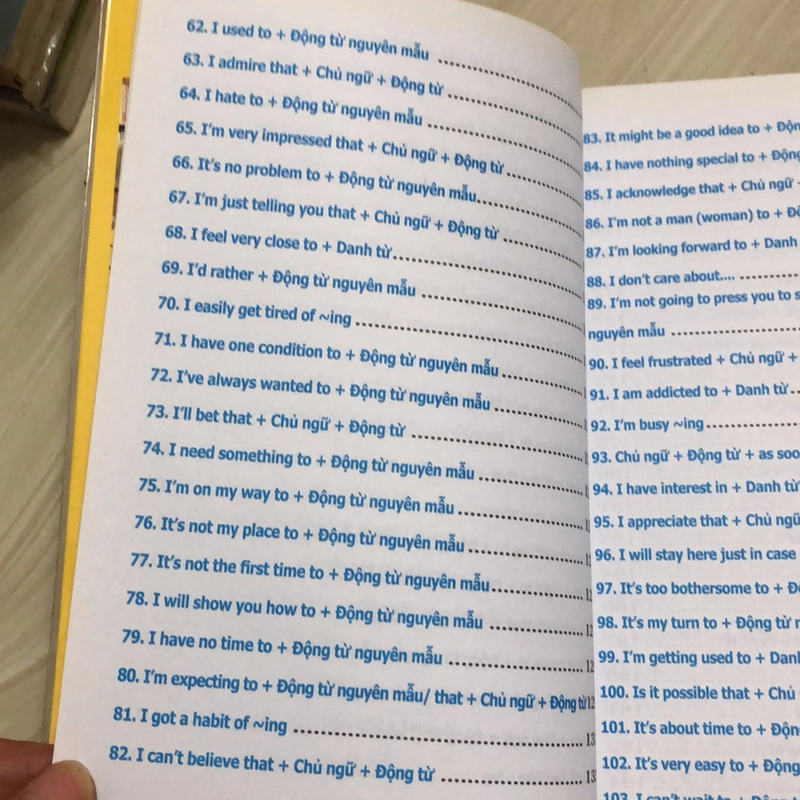 62. I used to + Động từ nguyên mẫu
63. I admire that + Chủ ngữ + Động từ
64. I hate to + Động từ nguyên mẫu
65. I'm very impressed that + Chủ ngữ + Động từ
66. It's no problem to + Động từ nguyên mẫu
67. I'm just telling you that + Chủ ngữ + Động từ
68. I feel very close to + Danh từ
69. I'd rather + Động từ nguyên mẫu
70. I easily get tired of ~ing
71. I have one condition to + Động từ nguyên mẫu
72. I've always wanted to + Động từ nguyên mẫu
73. I'll bet that + Chủ ngữ + Động từ
74. I need something to + Động từ nguyên mẫu
75. I'm on my way to + Động từ nguyên mẫu
76. It's not my place to + Động từ nguyên mẫu
77. It's not the first time to + Động từ nguyên mẫu
78. I will show you how to + Động từ nguyên mẫu
79. I have no time to + Động từ nguyên mẫu
80. I'm expecting to + Động từ nguyên mẫu/ that + Chủ ngữ + Động từ
81. I got a habit of ~ing
82. I can't believe that + Chủ ngữ + Động từ
83. It might be a good idea to +
84. I have nothing special to + Động
85. I acknowledge that + Chủ ngữ
86. I'm not a man (woman) to +
87. I'm looking forward to + Danh
88. I don't care about....
89. I'm not going to press you to
nguyên mẫu
90. I feel frustrated + Chủ ngữ +
91. I am addicted to + Danh từ
92. I'm busy ~ing
93. Chủ ngữ + Động từ + as soo
94. I have interest in + Danh từ
95. I appreciate that + Chủ ngữ
96. I will stay here just in case
97. It's too bothersome to +
98. It's my turn to + Động từ
99. I'm getting used to + Danh
100. Is it possible that + Chủ
101. It's about time to + Độn
102. It's very easy to + Động
103. I can't wait to +